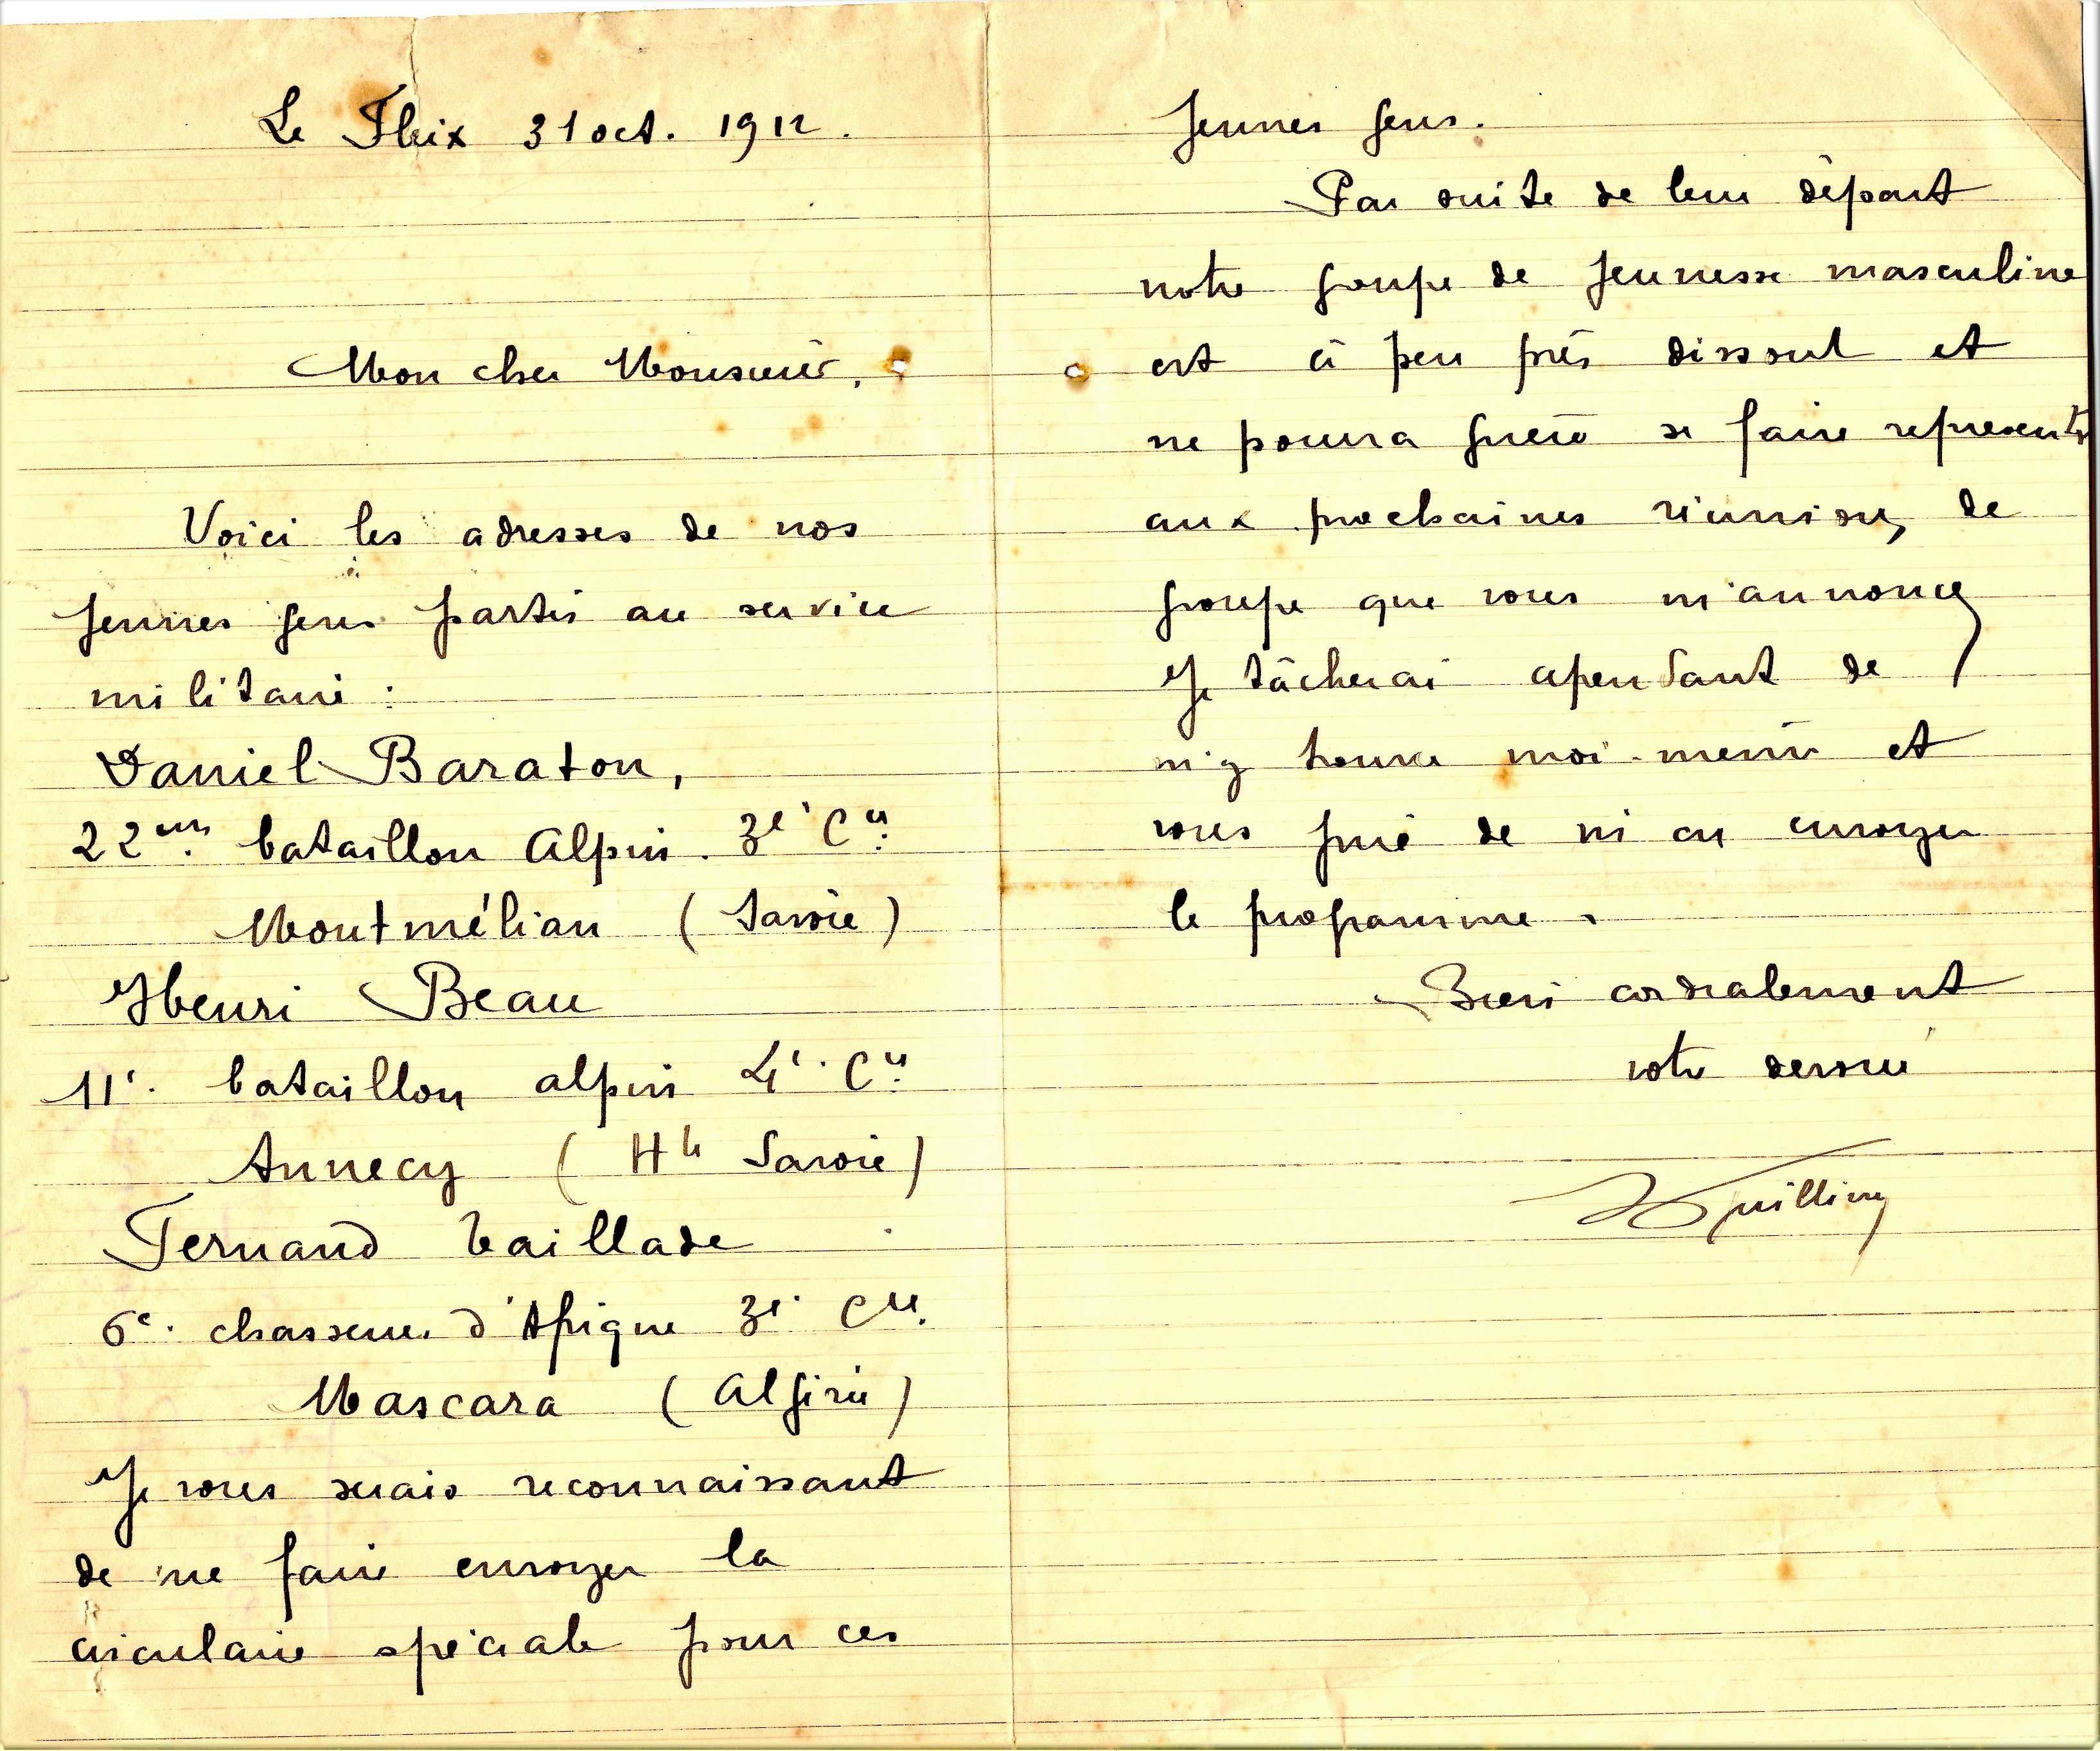 Le Fleix 31 oct. 1912.
Mon cher Monsieur,
Voici les adresses de nos
jeunes gens partis au service
militaire :
Daniel Baraton,
22ème bataillon Alpin. 3e Cie
Montmélian (Savoie)
Henri Beau
11e. bataillon alpin 4e. Cie
Annecy (Hte Savoie)
Fernand Taillade
6e. chasseurs d'Afrique 3e Cie.
Mascara (Algérie)
Je vous serais reconnaissant
de me faire envoyer la
circulaire spéciale pour ces
jeunes gens.
Par suite de leur départ
notre groupe de jeunesse masculine
est à peu près dissout et
ne pourra guère se faire representer
aux prochaines réunions de
groupe que vous m'annoncez
Je tâcherai cependant de
m'y trouver moi-même et
vous prie de m'en envoyer
le programme.
Bien cordialement
votre dévoué